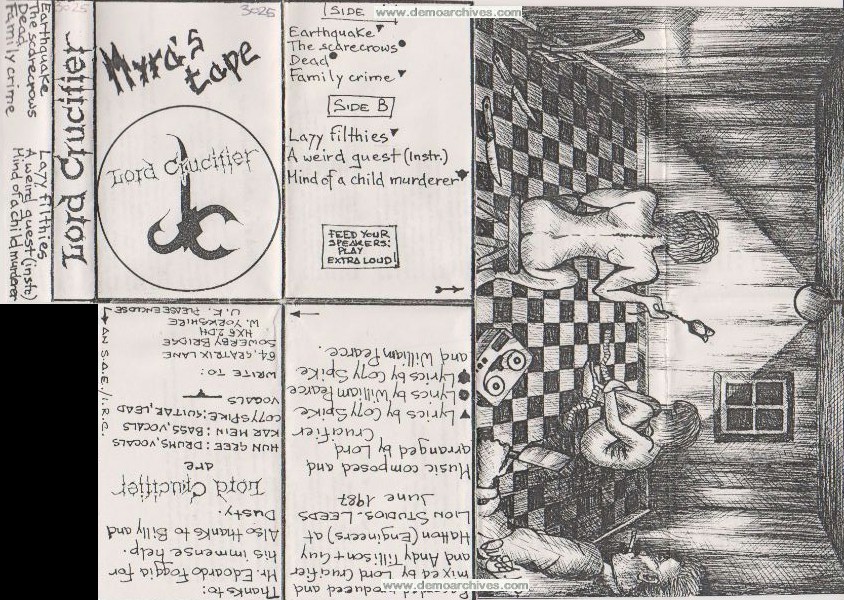 Earthquake
The scarecrows
Dead
Family crime
Lazy filthies
A weird guest (instr.)
Mind of a child murderer
Lord Crucifier
3025
Myra's
tape
Lord Crucifier
SIDE
www.demoarchives.com
Earthquake
The scarecrows
Dead
Family crime
SIDE B
Lazy filthies
A weird guest (Instr.)
Mind of a child murderer
FEED YOUR
SPEAKERS:
PLAY
EXTRA LOUD!
Thanks to:
Mr. Edoardo Foggia for
his immense help.
Also thanks to Billy and
Dusty.
Lord Crucifier
are
HUN GEEG: DRUMS, VOCALS
KAR MEIN: BASS, VOCALS
COZY SPIKE: GUITAR, LEAD
VOCALS
WRITE TO:
64, GRATRIX LANE
SOWERBY BRIDGE
HX6 2DH
W. YORKSHIRE
U.K. PLEASE ENCLOSE
AN S.A.E./I.R.C.
Recorded produced and
mixed by Lord Crucifier
and Andy Tillison + Guy
Hatton (Engineers) at
LION STUDIOS - LEEDS
June 1987
Music composed and
arranged by Lord
Crucifier
Lyrics by Cozy Spike
Lyrics by William Pearce
Lyrics by Cozy Spike
and William Pearce.
www.demoarchives.com